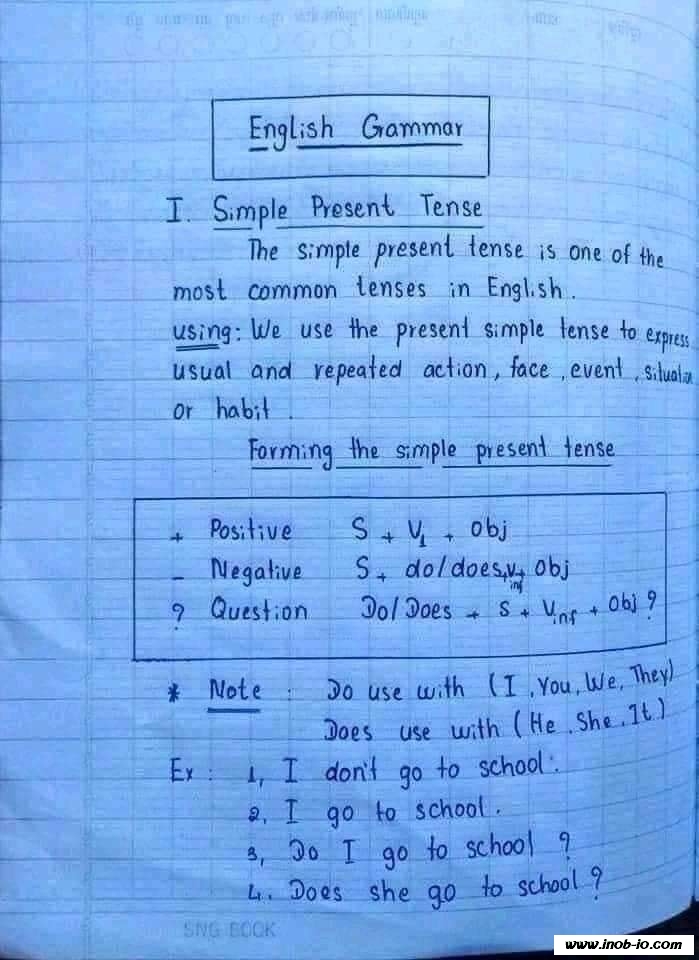 English Gammar
I. Simple Present Tense
The simple present tense is one of the
most common tenses in English.
using: We use the present simple tense to express
usual and repeated action, face, event, situation
or habit.
Forming the simple present tense
+ Positive S + V1 + Obj
- Negative S + do/does + V inf + Obj
? Question Do/Does + S + Vinf + Obj ?
* Note : Do use with (I, You, We, They)
Does use with (He, She, It)
Ex : 1, I don't go to school.
2, I go to school.
3, Do I go to school ?
4. Does she go to school ?
SNG BOOK
www.inob-io.com